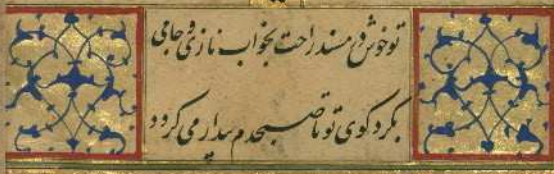 تو خوش در مسند راحت بخواب نازی و جامی
بگرد کوی تو تا صبحدم بیدار می گردد